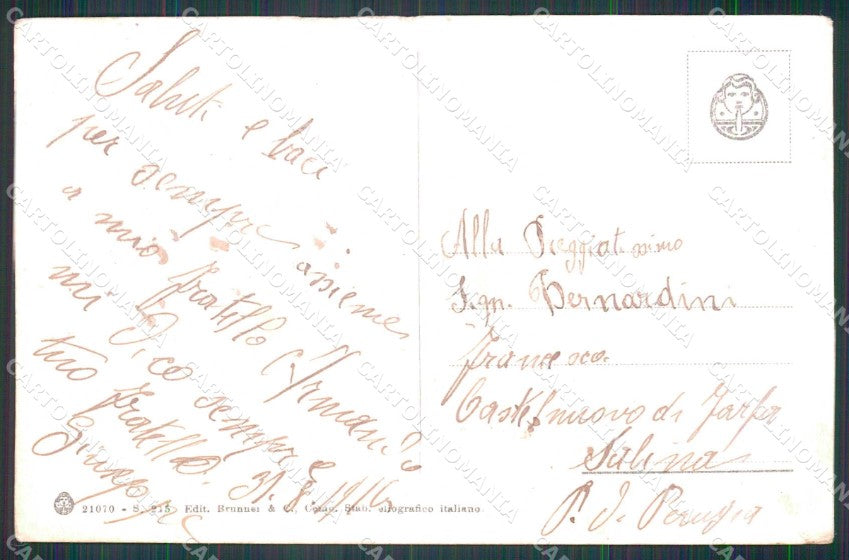 Saluti e baci
per sempre assieme
a mio fratello Armando
mi dico sempre
tuo fratello.
Giuseppe
31. 8. 1916
Alla Preggiatissimo
Sign. Bernardini
Francesco.
Castelnuovo di Farfa
Sabina
P. di Perugia
21070 - S. 215 Edit. Brunner & C., Como. Stab. eliografico italiano.
CARTOLINOMANIA